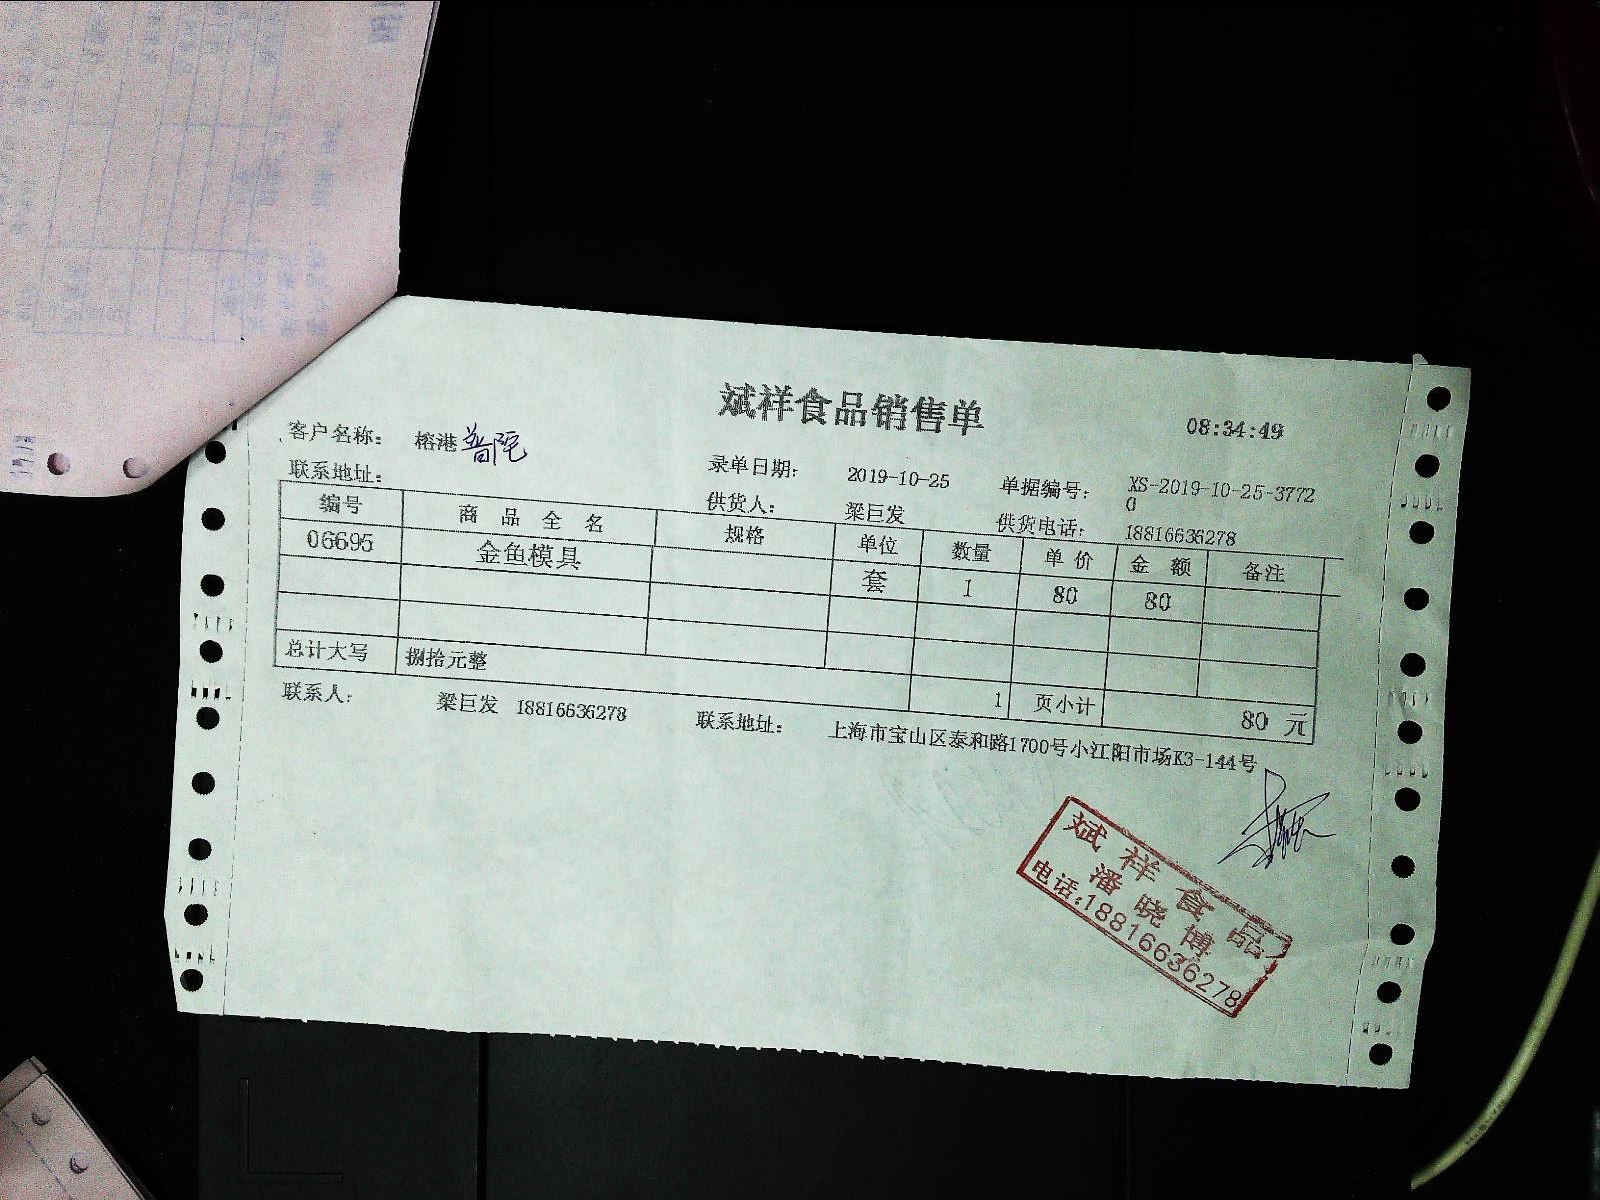 斌祥食品销售单
08:34:49
客户名称： 榕港 普陀
录单日期： 2019-10-25 单据编号： XS-2019-10-25-3772
0
联系地址：
供货人： 梁巨发 供货电话： 18816636278
编号 商品全名 规格 单位 数量 单价 金额 备注
06695 金鱼模具 套 1 80 80
总计大写 捌拾元整
1 页小计 80 元
联系人： 梁巨发 18816636278 联系地址： 上海市宝山区泰和路1700号小江阳市场K3-144号
斌祥食品
潘晓博
电话:18816636278